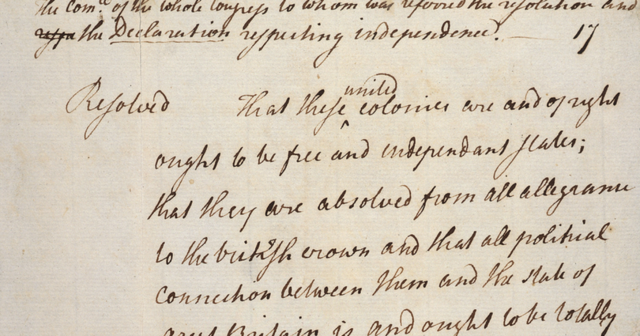 the Com.ee of the whole Congress to whom was referred the resolution and
the Declaration respecting independence. — 17
Resolved That these united colonies are and of right
ought to be free and independant states;
that they are absolved from all allegiance
to the british crown and that all political
connection between them and the state of
great Britain is and ought to be totally